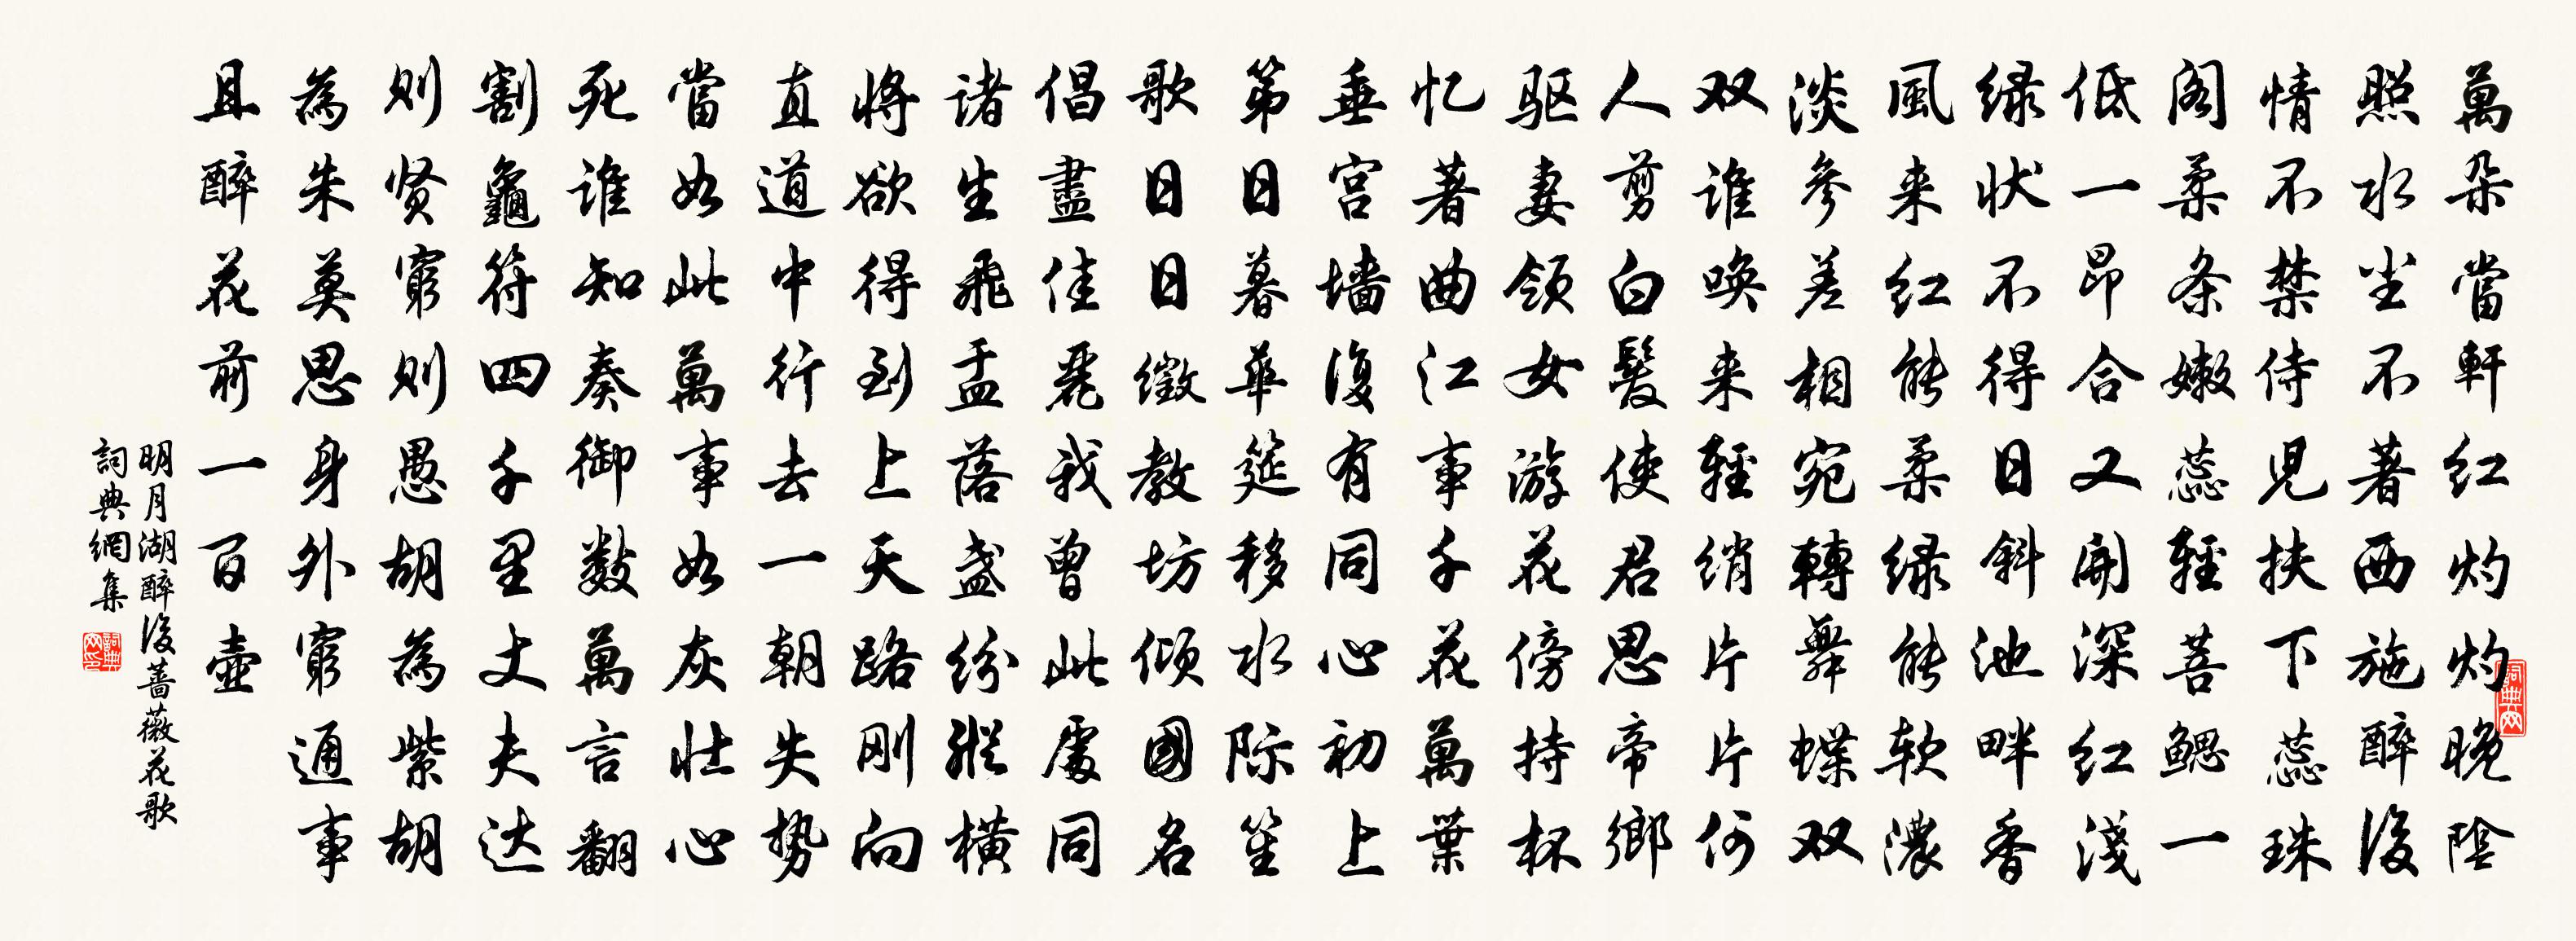 萬朵當軒红灼灼晚陰
照水尘不著西施醉後
情不禁侍児扶下蕊珠
阁柔条嫩蕊輕菩鳃一
低一昂合又開深红淺
绿状不得日斜池畔香
風来红能柔绿能软濃
淡参差相宛轉舞蝶双
双谁唤来輕绡片片何
人剪白髪使君思帝鄉
驱妻领女游花傍持杯
忆著曲江事千花萬葉
垂宫墙復有同心初上
第日暮華筵移水际笙
歌日日徵教坊倾國名
倡盡佳麗我曾此處同
诸生飛盂落盏纷縱横
将欲得到上天路刚向
直道中行去一朝失势
當如此萬事如灰壮心
死谁知奏御数萬言翻
割龜符四千里丈夫达
则贤窮则愚胡為紫胡
為朱莫思身外窮通事
且醉花前一百壶
明月湖醉後薔薇花歌
詞典網集
詞典网
詞典网印